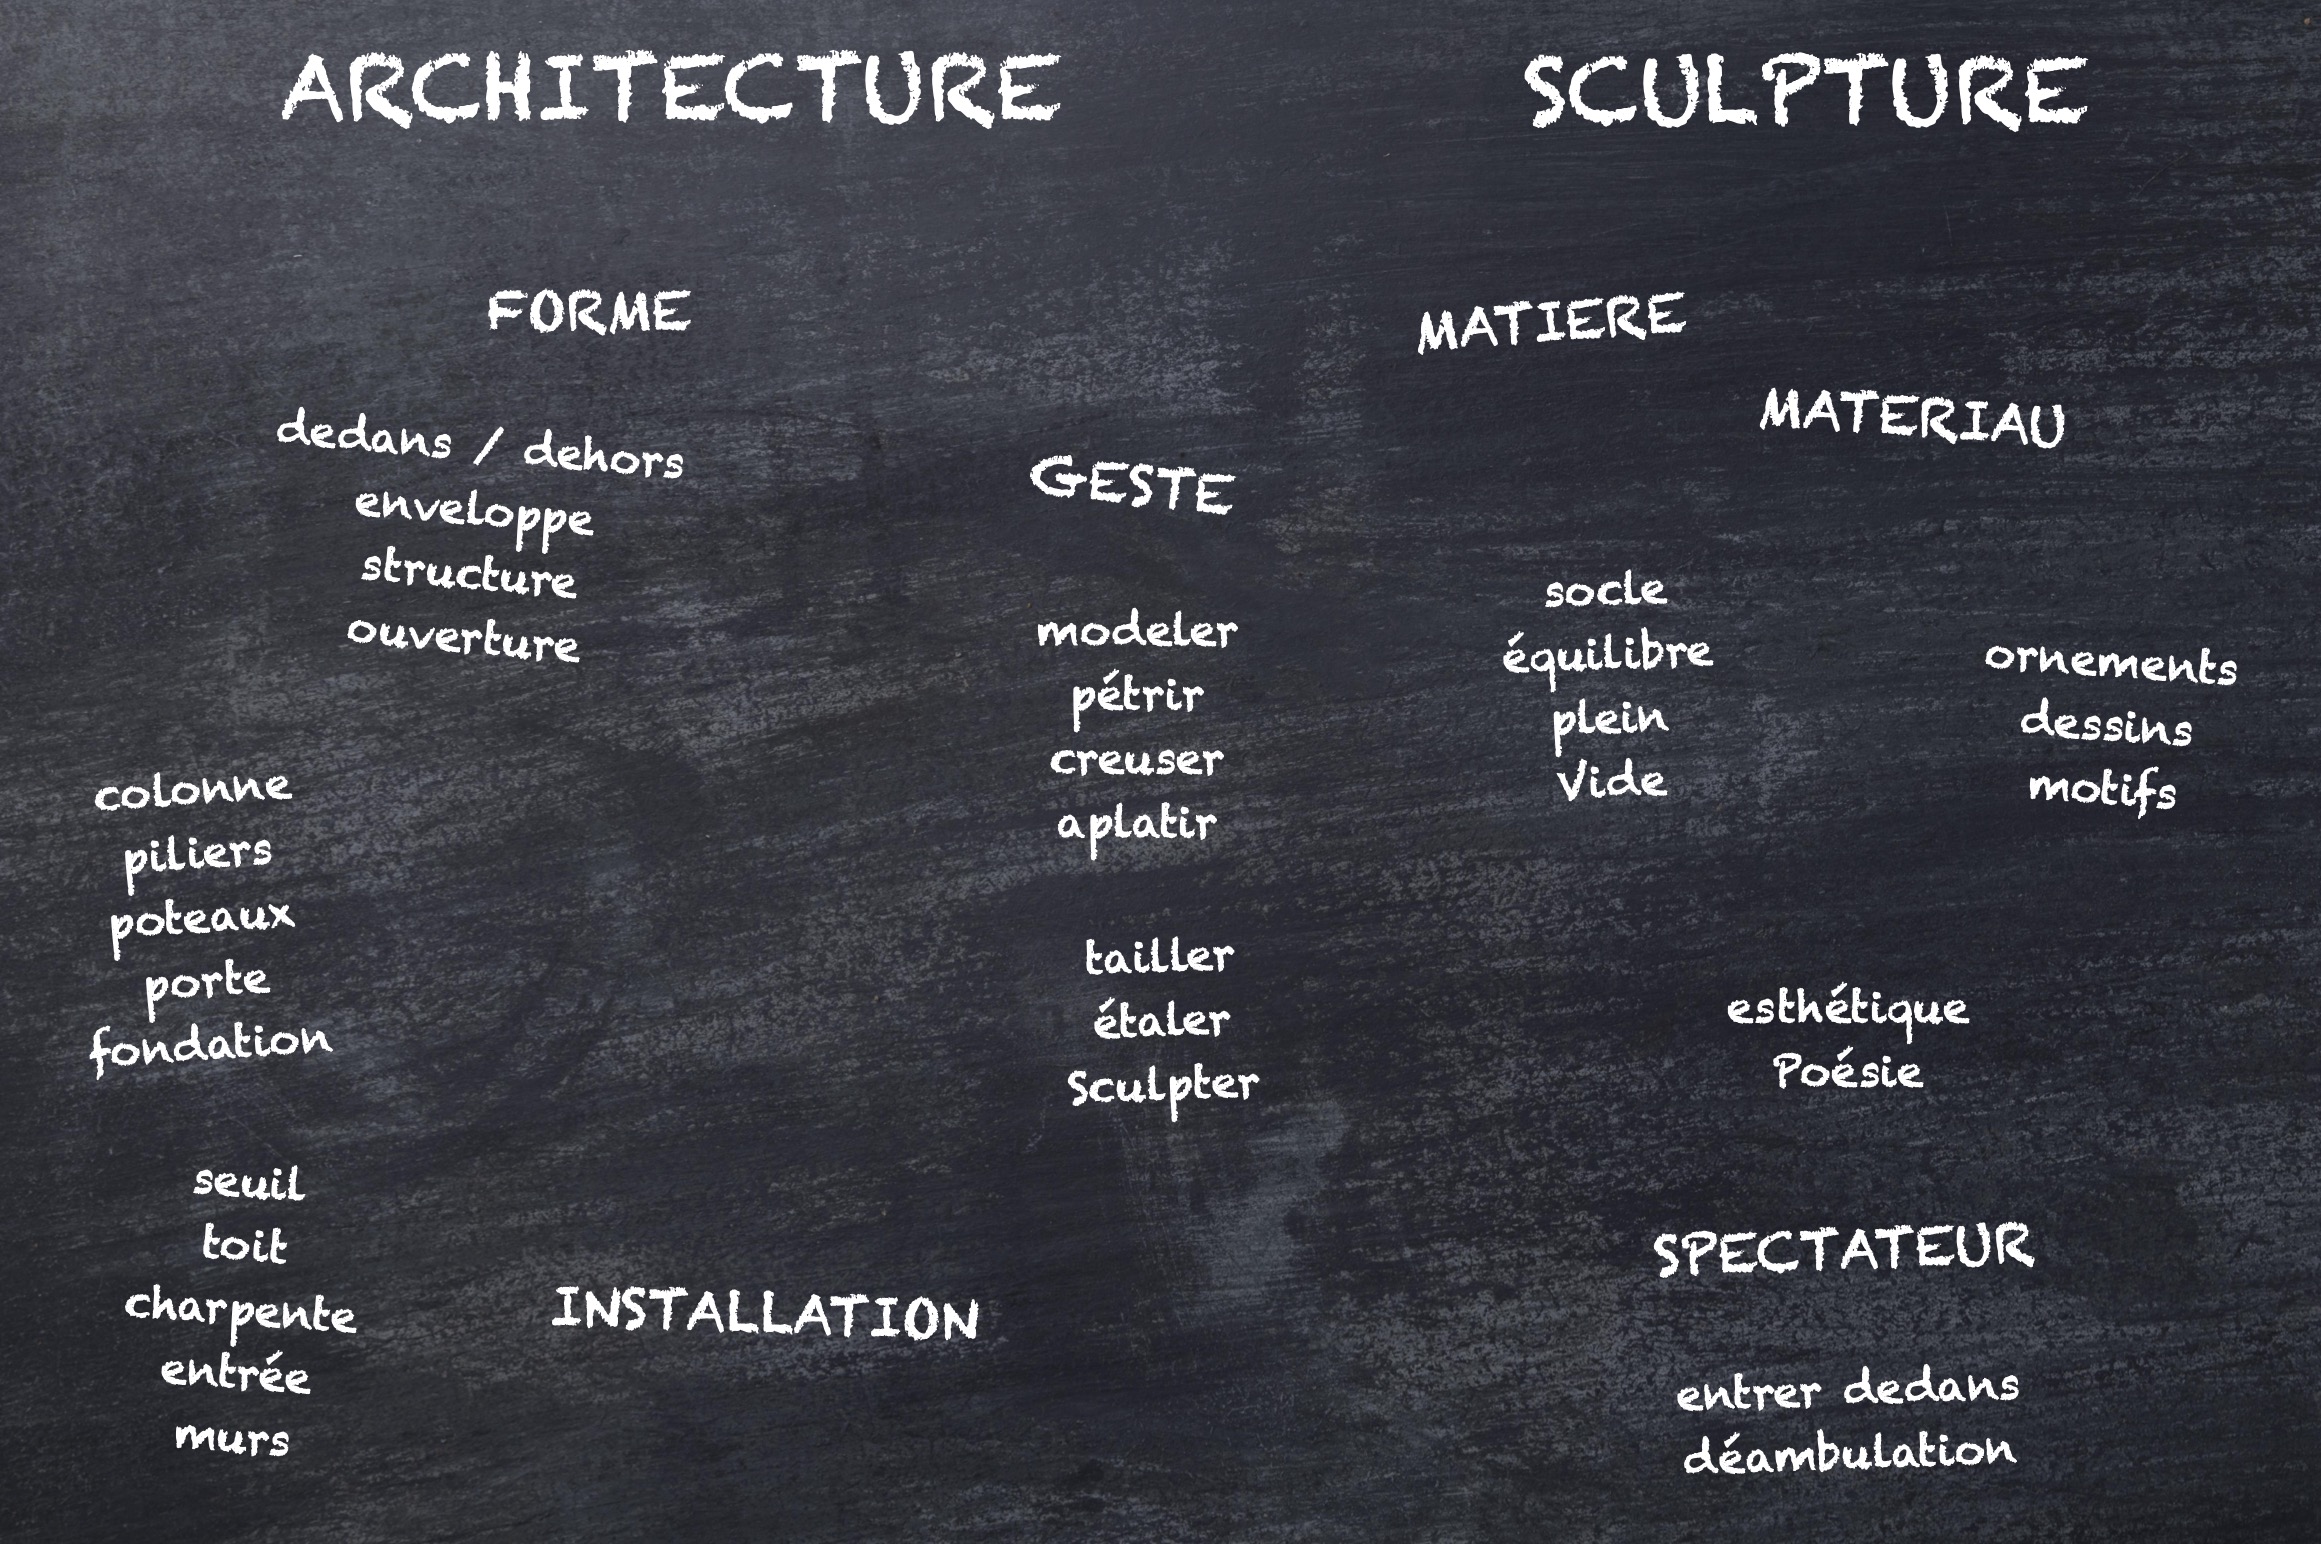 ARCHITECTURE
SCULPTURE
FORME
dedans / dehors
enveloppe
structure
ouverture
colonne
piliers
poteaux
porte
fondation
seuil
toit
charpente
entrée
murs
INSTALLATION
GESTE
modeler
pétrir
creuser
aplatir
tailler
étaler
Sculpter
MATIERE
MATERIAU
socle
équilibre
plein
Vide
ornements
dessins
motifs
esthétique
Poésie
SPECTATEUR
entrer dedans
déambulation